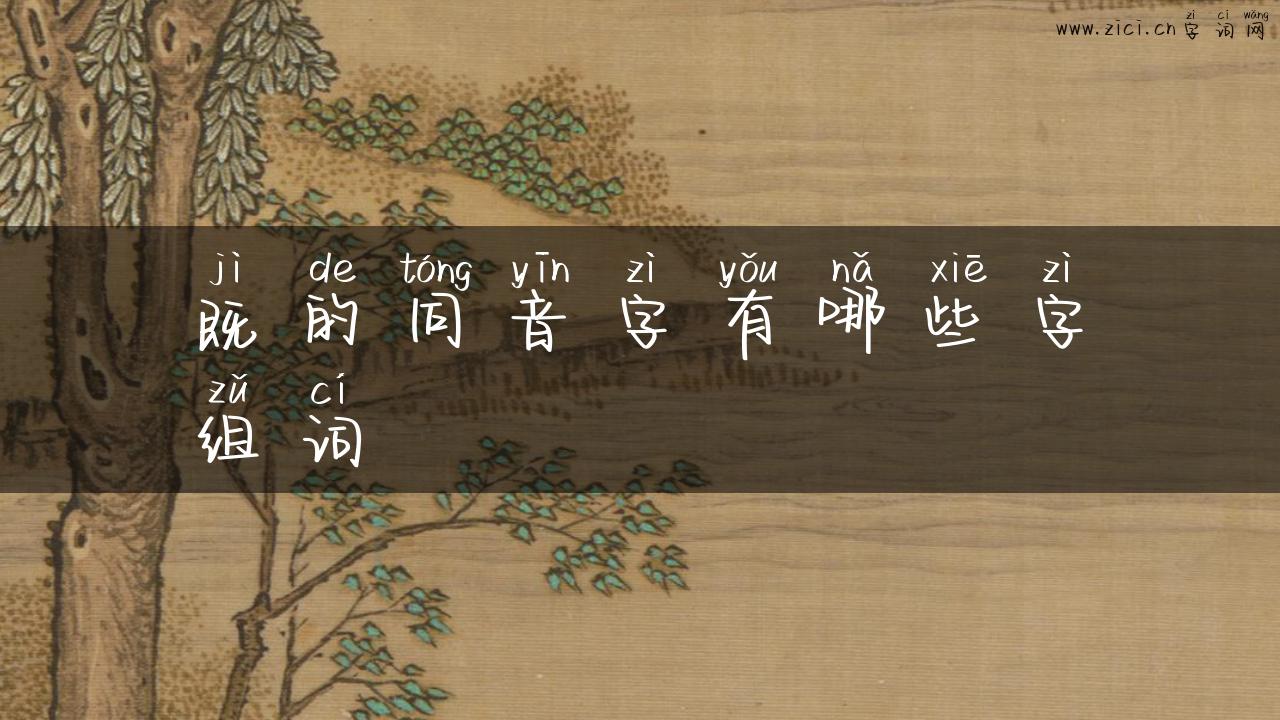 zì cí wǎng
www.zici.cn 字词网
jì de tóng yīn zì yǒu nǎ xiē zì
既的同音字有哪些字
zǔ cí
组词